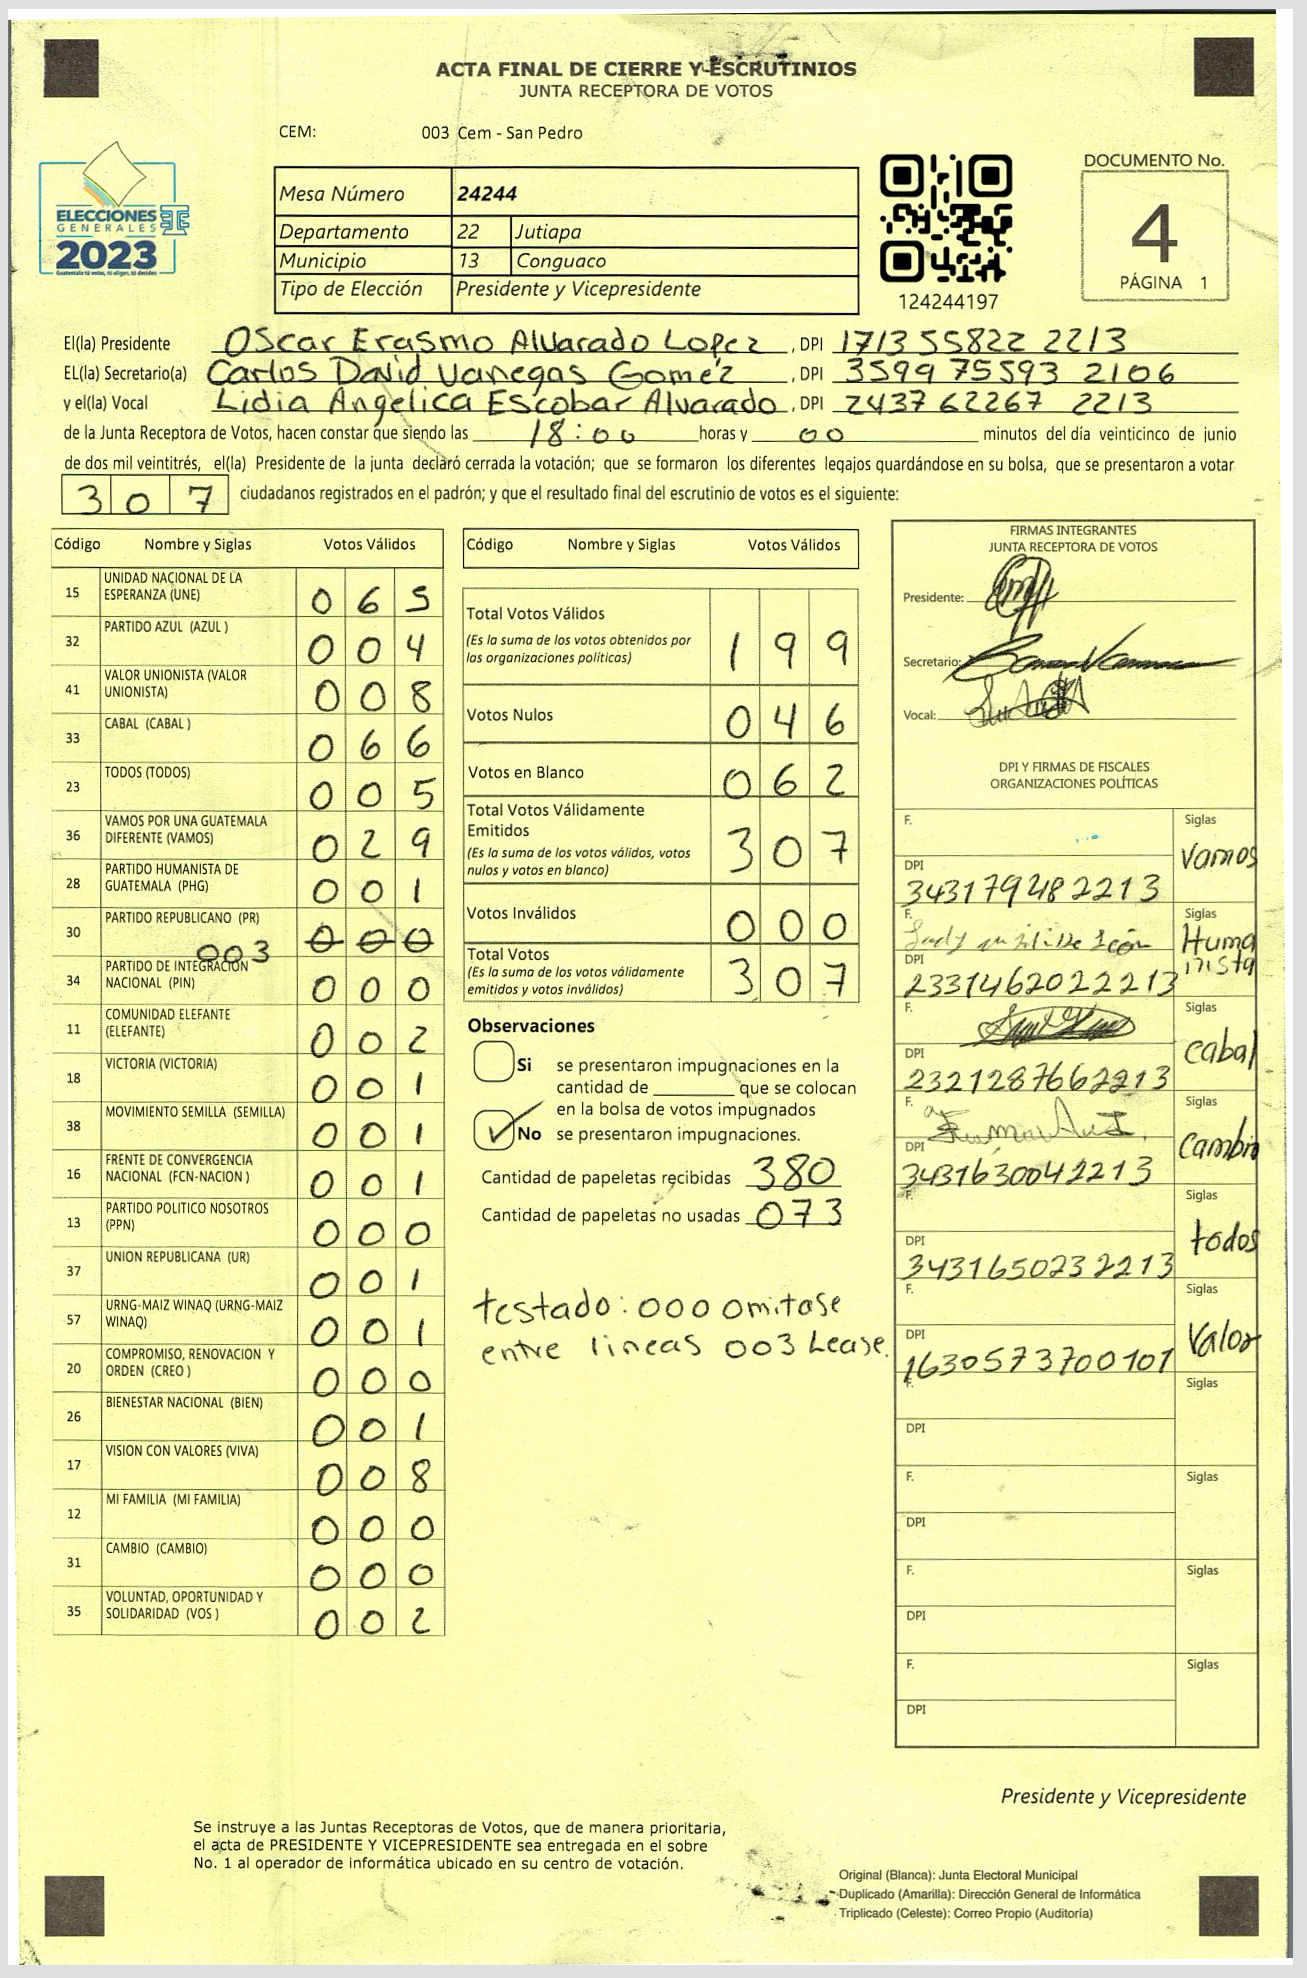 ACTA FINAL DE CIERRE Y ESCRUTINIOS
JUNTA RECEPTORA DE VOTOS
CEM: 003 Cem - San Pedro
ELECCIONES
GENERALES
2023
Guatemala tú votas, tú eliges, tú decides
Mesa Número 24244
Departamento 22 Jutiapa
Municipio 13 Conguaco
Tipo de Elección Presidente y Vicepresidente
124244197
DOCUMENTO No.
4
PÁGINA 1
El(la) Presidente Oscar Erasmo Alvarado Lopez, DPI 171355822 2213
EL(la) Secretario(a) Carlos David Vanegas Gomez, DPI 3599 75593 2106
y el(la) Vocal Lidia Angelica Escobar Alvarado, DPI 2437 62267 2213
de la Junta Receptora de Votos, hacen constar que siendo las 18:00 horas y 00 minutos del día veinticinco de junio
de dos mil veintitrés, el(la) Presidente de la junta declaró cerrada la votación; que se formaron los diferentes legajos guardándose en su bolsa, que se presentaron a votar
307 ciudadanos registrados en el padrón; y que el resultado final del escrutinio de votos es el siguiente:
Código Nombre y Siglas Votos Válidos
15 UNIDAD NACIONAL DE LA
ESPERANZA (UNE) 065
32 PARTIDO AZUL (AZUL ) 004
41 VALOR UNIONISTA (VALOR
UNIONISTA) 008
33 CABAL (CABAL ) 066
23 TODOS (TODOS) 005
36 VAMOS POR UNA GUATEMALA
DIFERENTE (VAMOS) 029
28 PARTIDO HUMANISTA DE
GUATEMALA (PHG) 001
30 PARTIDO REPUBLICANO (PR) 000
003
34 PARTIDO DE INTEGRACION
NACIONAL (PIN) 000
11 COMUNIDAD ELEFANTE
(ELEFANTE) 002
18 VICTORIA (VICTORIA) 001
38 MOVIMIENTO SEMILLA (SEMILLA) 001
16 FRENTE DE CONVERGENCIA
NACIONAL (FCN-NACION ) 001
13 PARTIDO POLITICO NOSOTROS
(PPN) 000
37 UNION REPUBLICANA (UR) 001
57 URNG-MAIZ WINAQ (URNG-MAIZ
WINAQ) 001
20 COMPROMISO, RENOVACION Y
ORDEN (CREO ) 000
26 BIENESTAR NACIONAL (BIEN) 001
17 VISION CON VALORES (VIVA) 008
12 MI FAMILIA (MI FAMILIA) 000
31 CAMBIO (CAMBIO) 000
35 VOLUNTAD, OPORTUNIDAD Y
SOLIDARIDAD (VOS ) 002
Código Nombre y Siglas Votos Válidos
Total Votos Válidos
(Es la suma de los votos obtenidos por
las organizaciones políticas) 199
Votos Nulos 046
Votos en Blanco 062
Total Votos Válidamente
Emitidos
(Es la suma de los votos válidos, votos
nulos y votos en blanco) 307
Votos Inválidos 000
Total Votos
(Es la suma de los votos válidamente
emitidos y votos inválidos) 307
Observaciones
Si se presentaron impugnaciones en la
cantidad de ________ que se colocan
en la bolsa de votos impugnados
No se presentaron impugnaciones.
Cantidad de papeletas recibidas 380
Cantidad de papeletas no usadas 073
testado: 000 omitase
entre lineas 003 Lease.
FIRMAS INTEGRANTES
JUNTA RECEPTORA DE VOTOS
Presidente:
Secretario:
Vocal:
DPI Y FIRMAS DE FISCALES
ORGANIZACIONES POLÍTICAS
F. Siglas
Vamos
DPI
343179482213
F. Siglas
Huma
nista
DPI
2331462022213
F. Siglas
cabal
DPI
2321287662213
F. Siglas
cambio
DPI
3431630042213
F. Siglas
todos
DPI
3431650232213
F. Siglas
Valor
DPI
1630573700101
F. Siglas
DPI
F. Siglas
DPI
F. Siglas
DPI
F. Siglas
DPI
Presidente y Vicepresidente
Se instruye a las Juntas Receptoras de Votos, que de manera prioritaria,
el acta de PRESIDENTE Y VICEPRESIDENTE sea entregada en el sobre
No. 1 al operador de informática ubicado en su centro de votación.
Original (Blanca): Junta Electoral Municipal
Duplicado (Amarilla): Dirección General de Informática
Triplicado (Celeste): Correo Propio (Auditoría)